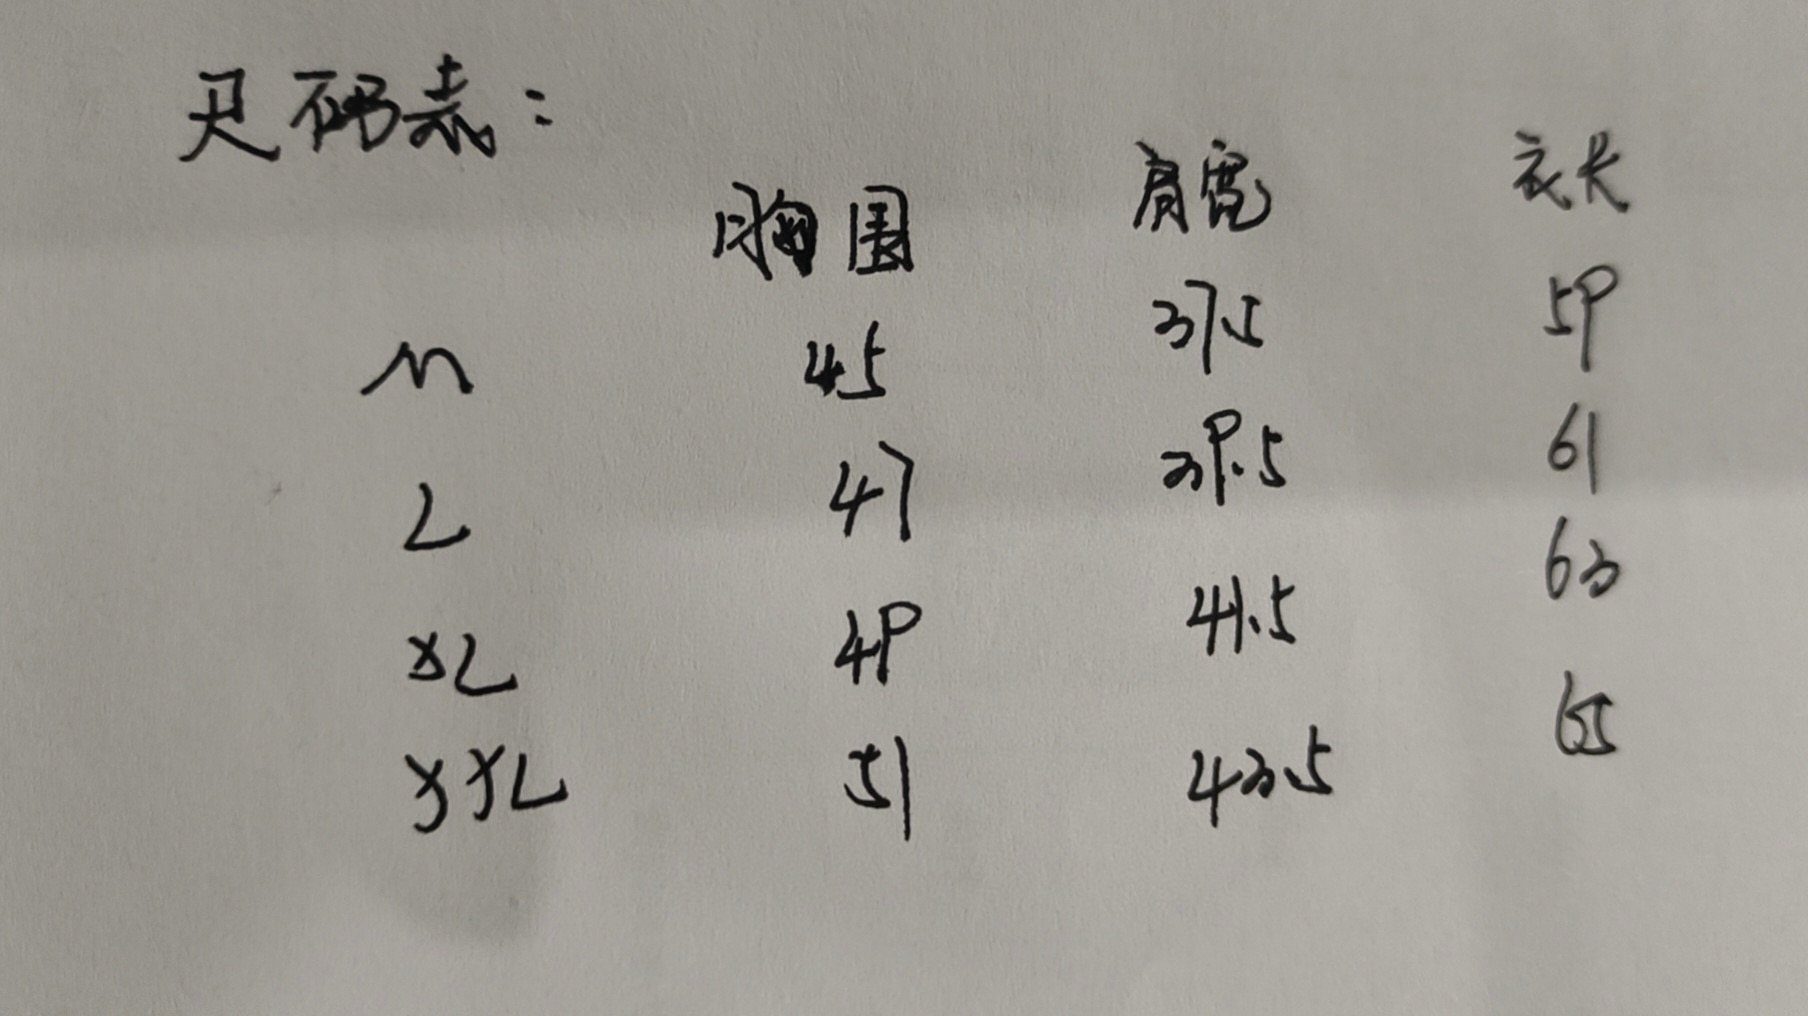 尺码表：
胸围 肩宽 衣长
M 45 37.5 59
L 47 39.5 61
XL 49 41.5 63
XXL 51 43.5 65